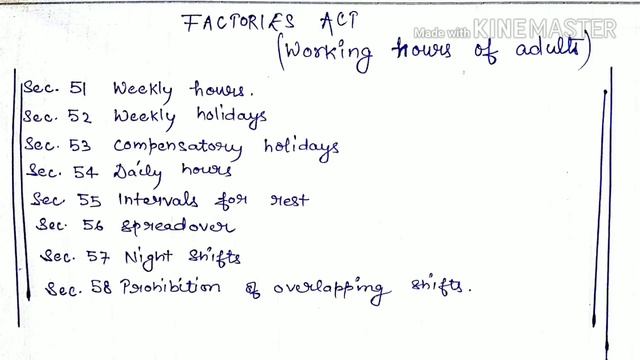 FACTORIES ACT
Made with KINEMASTER
(Working hours of adults)
Sec. 51 Weekly hours.
Sec. 52 Weekly holidays
Sec. 53 Compensatory holidays
Sec. 54 Daily hours
Sec 55 Intervals for rest
Sec. 56 Spreadover
Sec. 57 Night Shifts
Sec. 58 Prohibition of overlapping shifts.